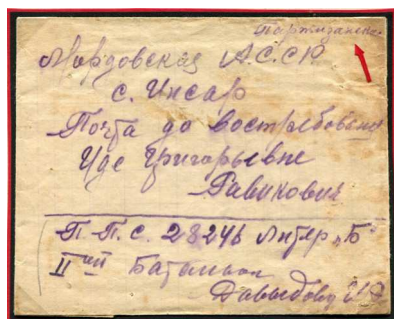 Партизанское
Мордовская А.С.С.Р.
с. Инсар
Почта до востребования
Иде Григорьевне
Равикович
П.П.С. 28246 литер „Б"
II ой Батальон
Давыдову И.Э.